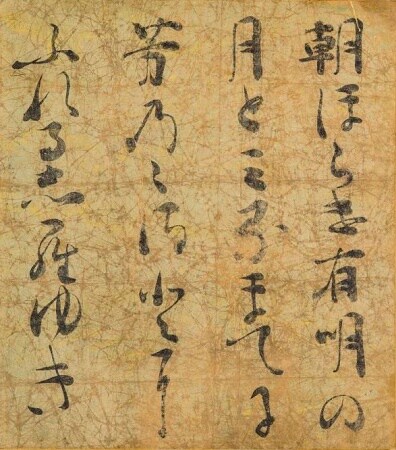 朝ほらけ有明の
月とミるまてに
芳乃ゝ満とに
ふれる志羅ゆき